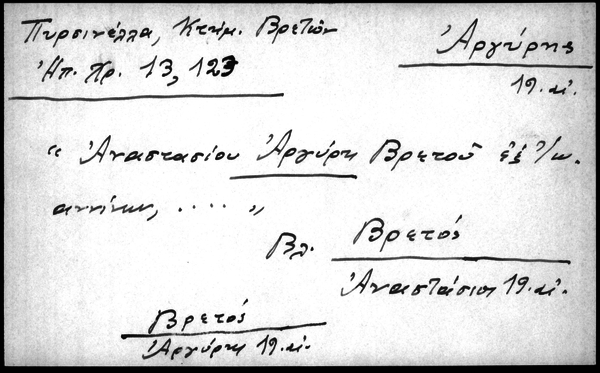 Πυρσινέλλα, Κτημ. Βρετών
Ἠπ. Χρ. 13, 123
Ἀργύρης
19. αἰ.
" Ἀναστασίου Ἀργύρη Βρετοῦ ἐξ Ἰω-
αννίνων, .... "
Βλ. Βρετός
Ἀναστάσιος 19. αἰ.
Βρετός
Ἀργύρη 19. αἰ.